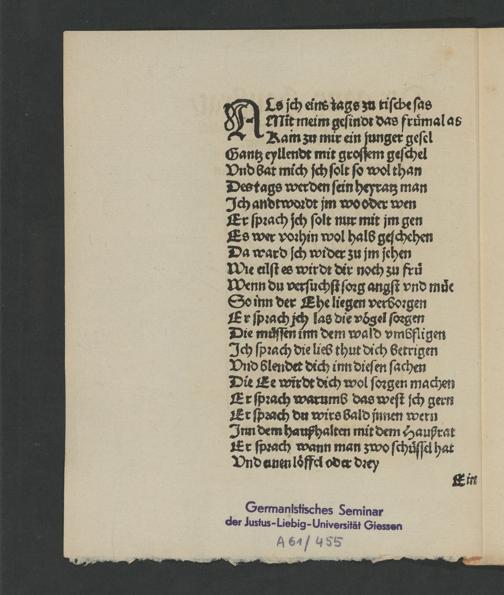 ALs jch eins tags zu tische sas
Mit meim gesindt das frümal as
Kam zu mir ein junger gesel
Gantz eyllendt mit grossem geschel
Vnd bat mich jch solt so wol than
Des tags werden sein heyratz man
Jch andtwordt jm wo oder wen
Er sprach jch solt nur mit jm gen
Es wer vorhin wol halb geschehen
Da ward jch wider zu jm jehen
Wie eilst es wirdt dir noch zu frü
Wenn du versuchst sorg angst vnd müe
So inn der Ehe liegen verborgen
Er sprach jch las die vögel sorgen
Die müssen inn dem wald vmbfligen
Jch sprach die lieb thut dich betrigen
Vnd blendet dich inn diesen sachen
Die Ee wirdt dich wol sorgen machen
Er sprach warumb das west jch gern
Er sprach du wirs bald jnnen wern
Jnn dem haußhalten mit dem Haußrat
Er sprach wann man zwo schüssel hat
Vnd einen löffel oder drey
Ein
Germanistisches Seminar
der Justus-Liebig-Universität Giessen
A 61/455